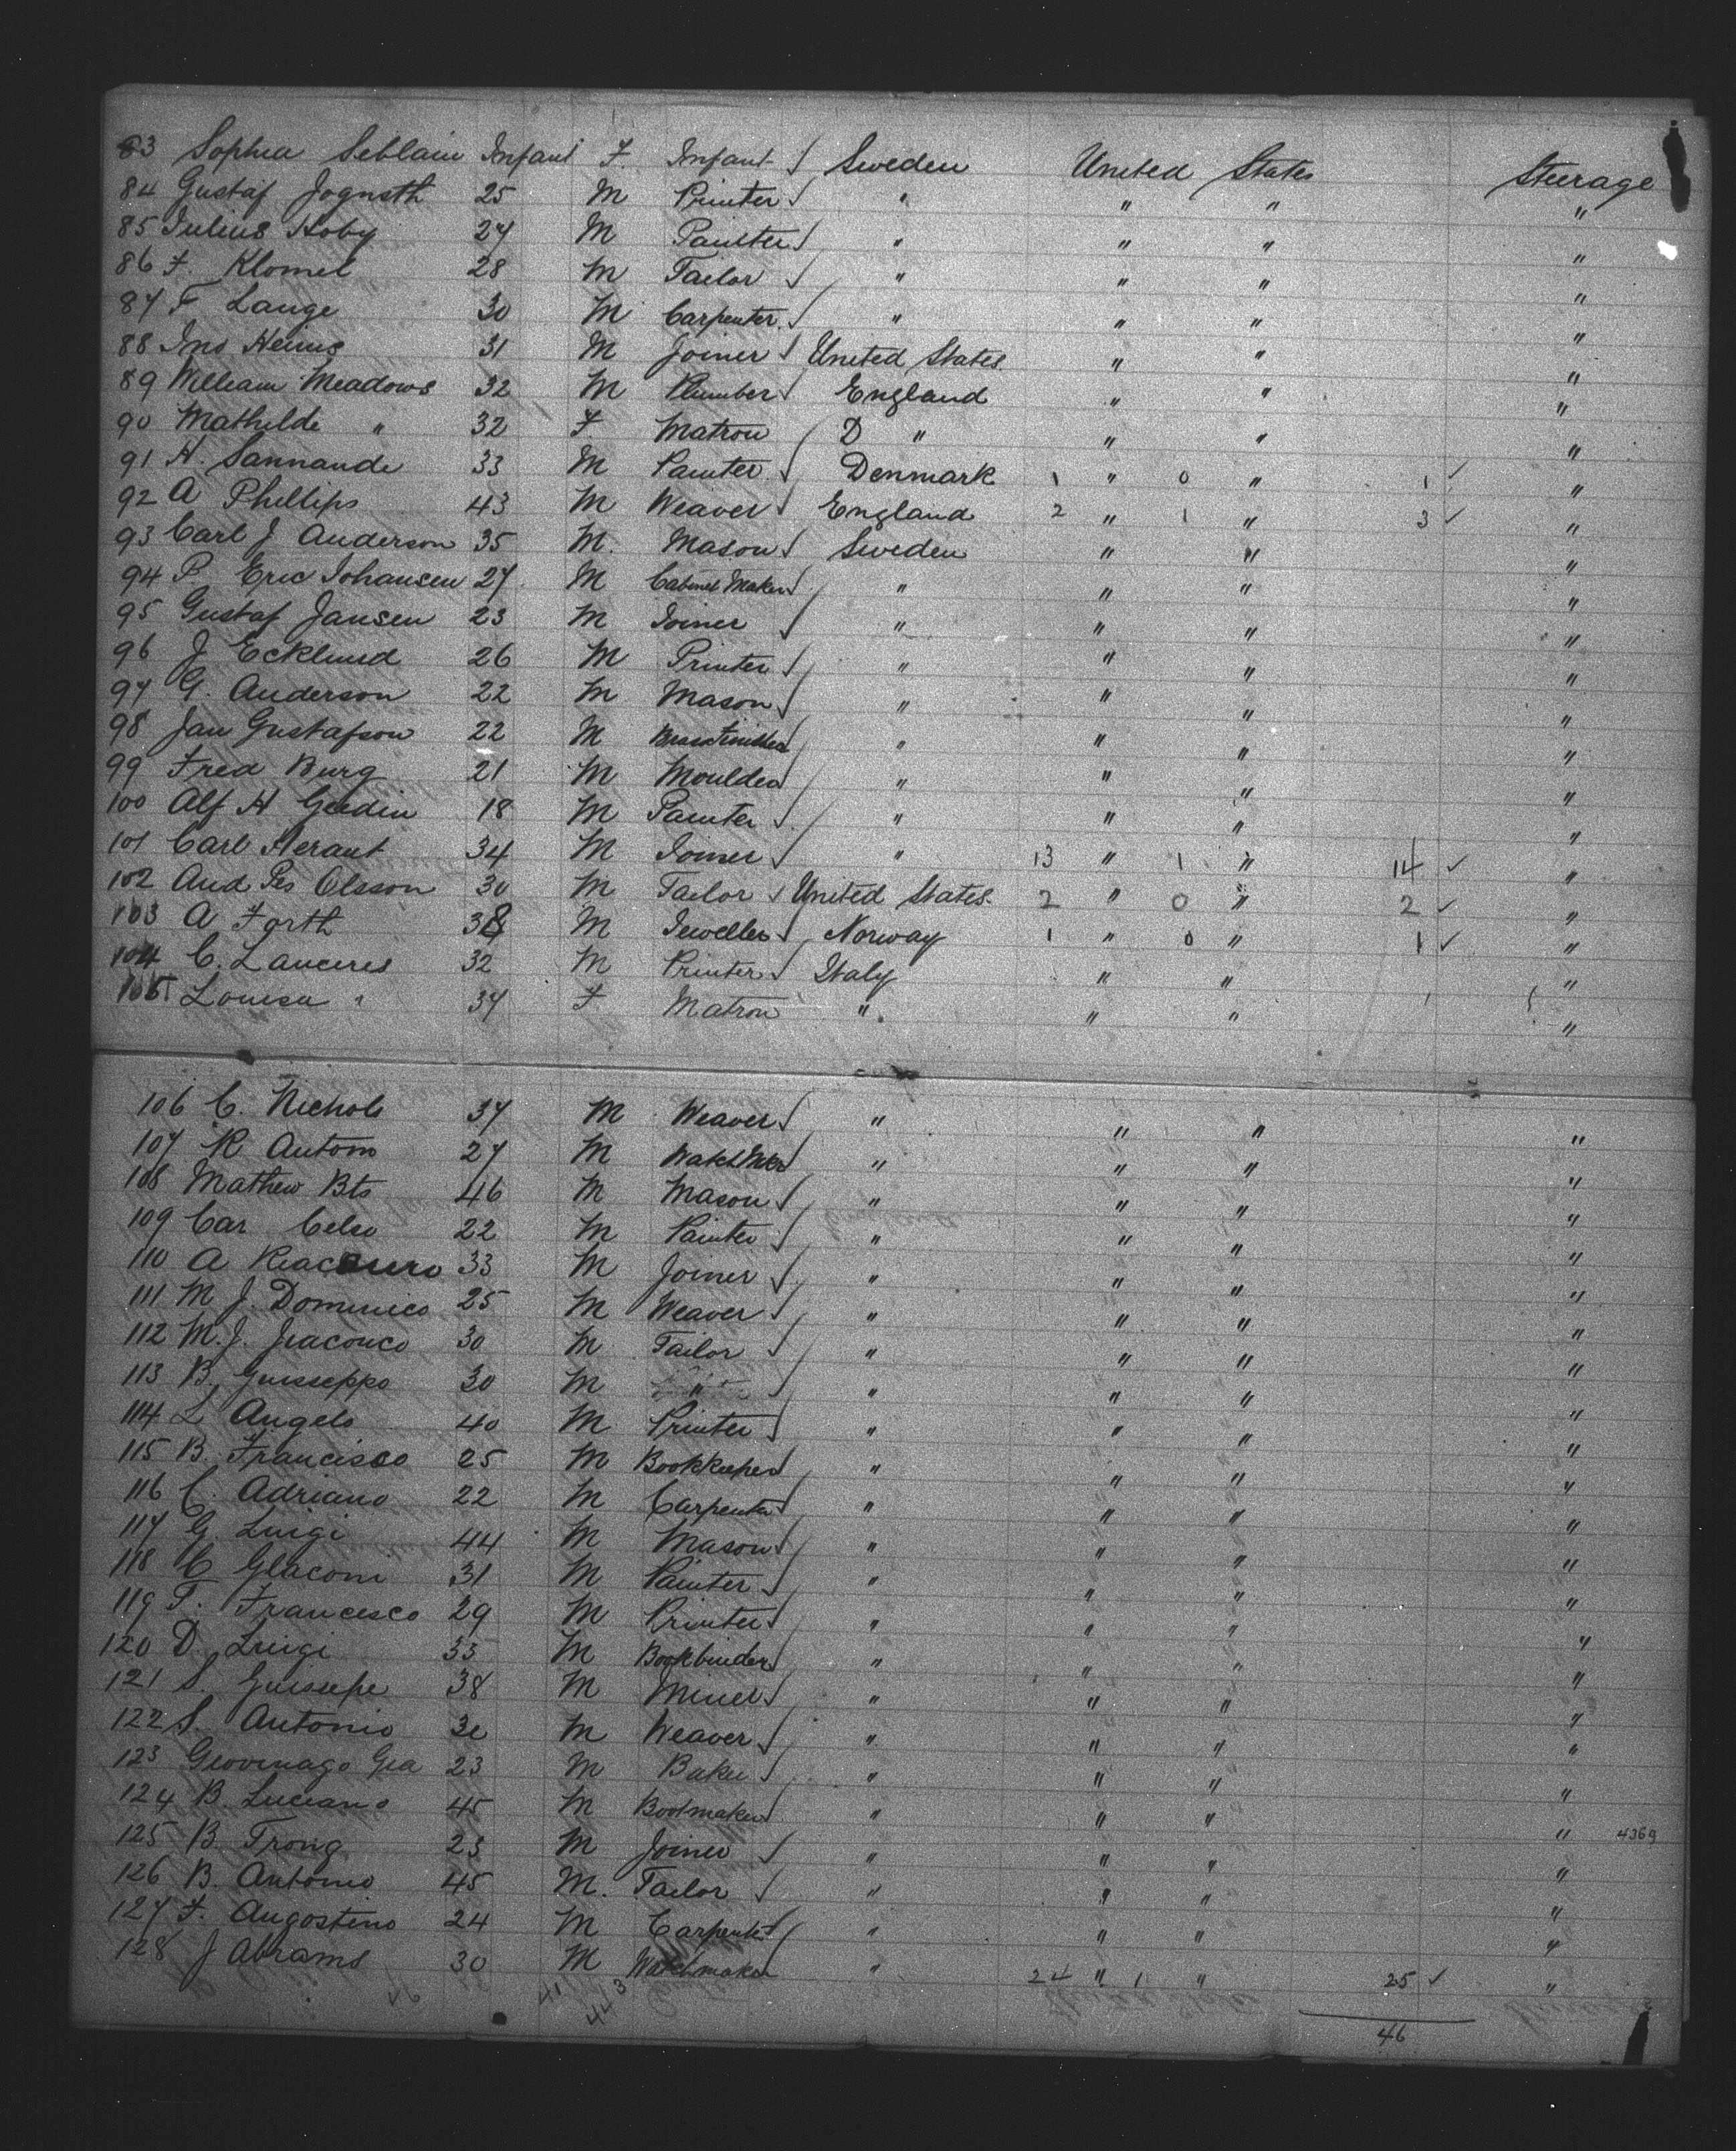 83 Sophia Seblain Infant F. Infant Sweden United States Steerage
84 Gustaf Jognsth 25 M Printer " " " "
85 Julius Hoby 27 M Painter " " " "
86 F. Klomel 28 M Tailor " " " "
87 F Lange 30 M Carpenter " " " "
88 Jno Hems 31 M Joiner United States " " "
89 William Meadows 32 M Plumber England " " "
90 Mathilde " 32 F. Matron D " " " "
91 H. Sannande 33 M Painter Denmark 1 " 0 " 1 ✓ "
92 A Phillips 43 M Weaver England 2 " 1 " 3 ✓ "
93 Carl J Anderson 35 M. Mason Sweden " " "
94 P. Eric Johansen 27 M Cabinet Maker " " " "
95 Gustaf Jansen 23 M Joiner " " " "
96 J Ecklund 26 M Printer " " " "
97 G. Anderson 22 M Mason " " " "
98 Jan Gustafson 22 M Brass Finisher " " " "
99 Fred Burg 21 M Moulder " " " "
100 Alf H Geedin 18 M Painter " " " "
101 Carl Herant 34 M Joiner " 13 " 1 " 14 ✓ "
102 And Pes Olsson 30 M Tailor United States 2 " 0 " 2 ✓ "
103 A Forth 38 M Jeweller Norway 1 " 0 " 1 ✓ "
104 C. Lanceres 32 M Printer Italy " " "
105 Louisa " 37 F Matron " " " "
106 C. Nichols 37 M Weaver " " " "
107 R Antom 27 M Watch Mkr " " " "
108 Mathew Bts 46 M Mason " " " "
109 Car Celso 22 M Painter " " " "
110 A 33 M Joiner " " " "
111 M J. Dominico 25 M Weaver " " " "
112 M. J. Jiaconco 30 M Tailor " " " "
113 B. Guisseppo 30 M " " " " "
114 L Angelo 40 M Printer " " " "
115 B. Francisco 25 M Bookkeeper " " " "
116 C. Adriano 22 M Carpenter " " " "
117 G. Luigi 44 M Mason " " " "
118 C Glaconi 31 M Painter " " " "
119 F. Francesco 29 M Printer " " " "
120 D. Luigi 33 M Bookbinder " " " "
121 S. Guissepe 38 M Miner " " " "
122 S. Antonio 30 M Weaver " " " "
123 Giovinago Gia 23 M Baker " " " "
124 B. Luciano 45 M Bootmaker " " " "
125 B. Trong 23 M Joiner " " " " 4369
126 B. Antonio 45 M. Tailor " " " "
127 F. Angostino 24 M Carpenter " " " "
128 J Abrams 30 M Watchmaker " 24 " 1 " 25 ✓ "
46